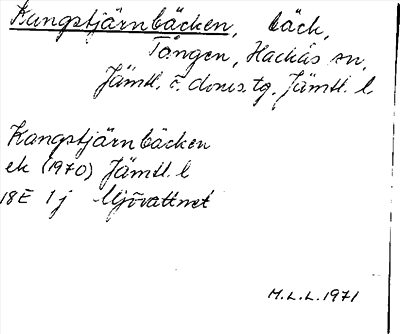 Kangstjärnbäcken, bäck,
Tången, Hackås sn,
Jämtl. ö. doms. tg, Jämtl. l
Kangstjärnbäcken
ek (1970) Jämtl. l
18E 1j Mjövattnet
M.L.L. 1971